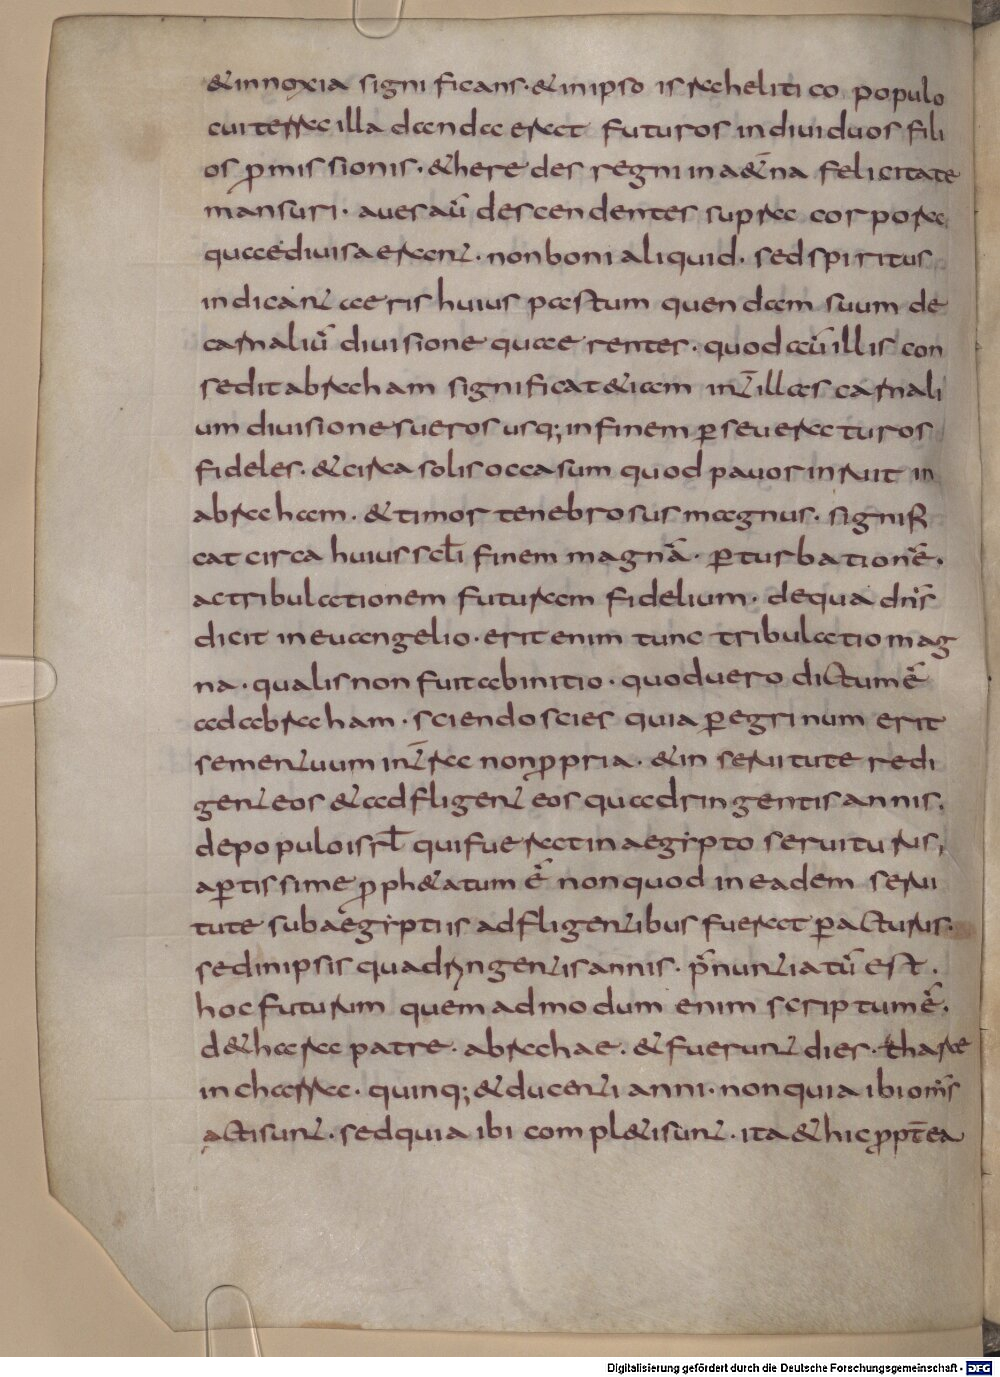 & innoxia significans · & in ipso israheliti co populo
cui terra illa danda erat futuros indiuiduos fili
os p̱missionis · & heredes regni in a&̄na felicitate
mansuri · aues aū descendentes supra corpora
quae diuisa erant · non boni aliquid · sed spiritus
indicant aeris huius pastum quendam suum de
carnaliū diuisione quaerentes · quod aū illis con
sedit abraham significat &iam int̄ illas carnali
um diuisiones ueros usq; in finem p̱seueraturos
fideles · & circa solis occasum quod pauor inruit in
abraham · & timor tenebrosus magnus · signifi
cat circa huius scl̄i finem magnā · p̱turbationē ·
ac tribulationem futuram fidelium · de qua dn̄s
dicit in euangelio · erit enim tunc tribulatio mag
na · qualis non fuit ab initio · quod uero dictum ē
ad abraham · sciendo scies quia p̱egrinum erit
semen tuum in t̄ra non p̱pria · & in seruitute redi
gent eos & adfligent eos quadringentis annis ·
de populo isrl̄ qui fuerat in aegipto seruiturus,
ap̱tissime p̱ph&atum ē non quod in eadem serui
tute sub aegiptiis adfligentibus fuerat p̱acturus ·
sed in ipsis quadringentis annis · p̄nuntiatū est ·
hoc futurum quemadmodum enim scriptum ē ·
d& hara patre · abrahae · & fuerunt dies · thare
in charra · quinq; & ducenti anni · non quia ibi om̄s
acti sunt · sed quia ibi compl&i sunt · ita & hic p̱pt̄ea
Digitalisierung gefördert durch die Deutsche Forschungsgemeinschaft - DFG